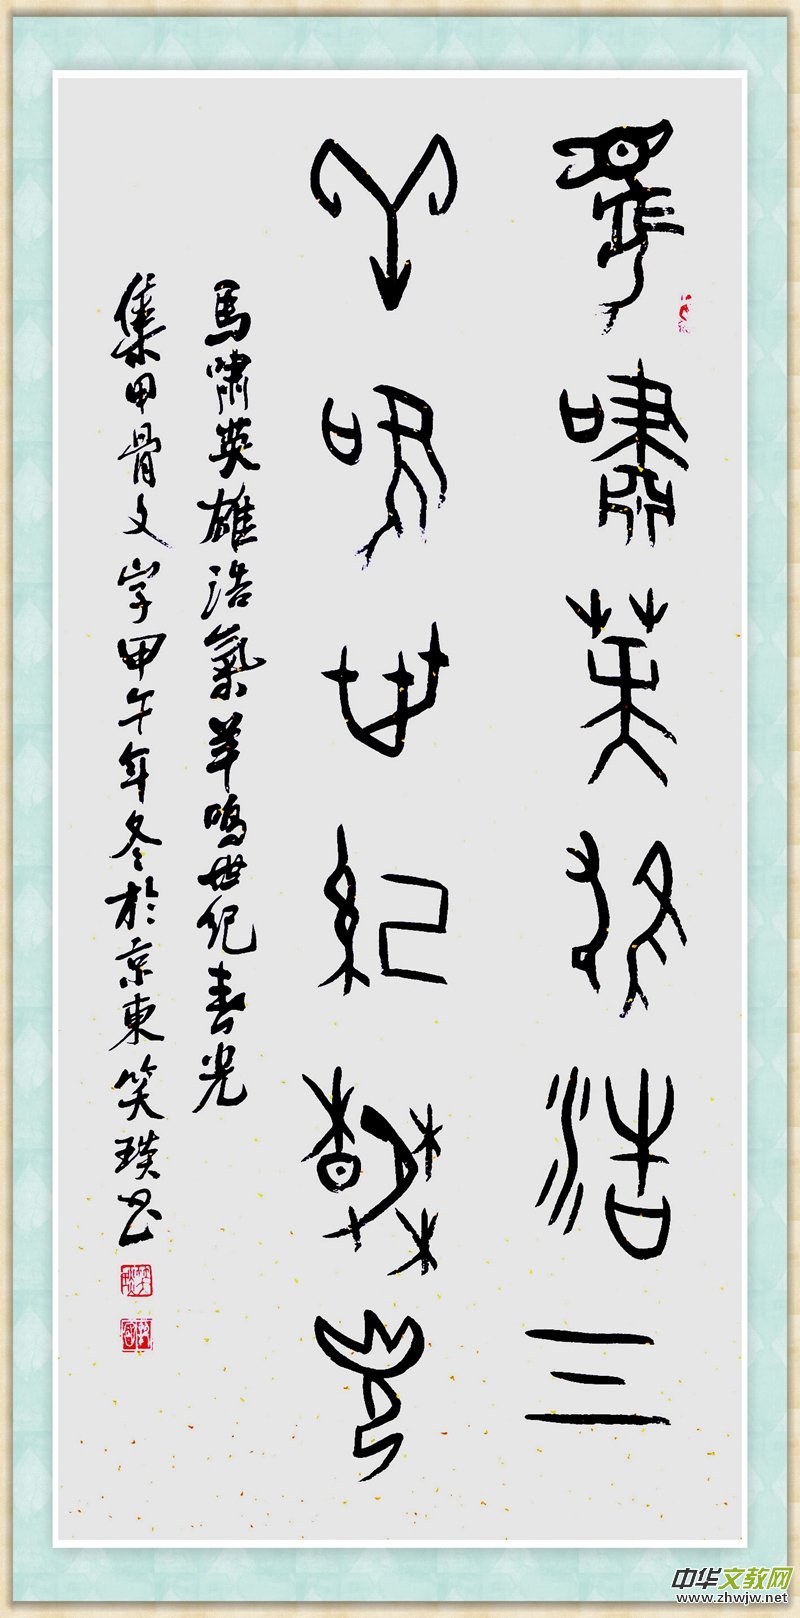 馬嘯英雄浩气
羊鳴世紀春光
馬嘯英雄浩氣羊鳴世紀春光
集甲骨文字甲午年冬於京東笑琰书
中华文教网
www.zhwjw.net